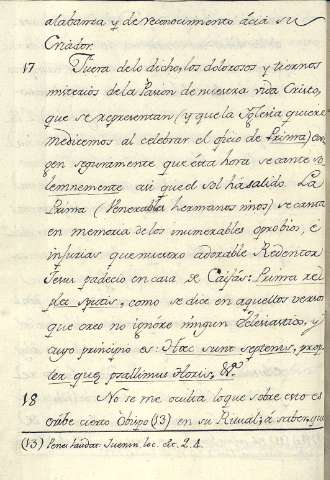 alabanza y de reconocimiento ácia su
Criador.
17 Fuera de lo dicho, los dolorosos y tiernos
misterios de la Pasion de nuestra vida Cristo,
que se representan (y que la Yglesia quiere
meditemos al celebrar el oficio de Prima) exi-
gen seguramente que ésta hora se cante so-
lemnemente asi que el sol ha salido. La
Prima (Venerables hermanos mios) se canta
en memoria de los inumerables oprobios, é
injurias que nuestro adorable Redentor
Jesus padeció en casa de Caifás: Prima re-
plet sputis, como se dice en aquellos versos
que creo no ignóre ningun Eclesiastico, y
cuyo principio es: Hæc sunt septenis, prop-
ter quæ psallimus Horis, &ª.
18 No se me oculta lo que sobre esto es-
cribe cierto Obispo (13) en su Ritual; á saber, que
(13) Penes laudat. Juenin loc. cit. 2. 4.